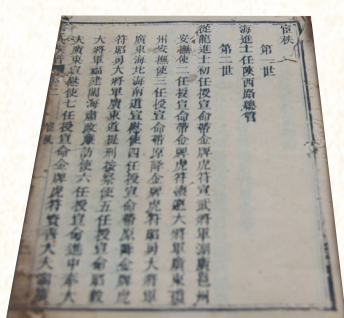 宦秩
第一世
海進士任陝西路總管
第二世
從龍進士初任授宣命帶金牌虎符宣武將軍湖廣邕州
安撫使二任授宣命帶金牌虎符懷遠大將軍廣東道
州安撫使三任授宣命帶原降金牌虎符昭勇大將軍
廣東海北海南道宣慰使四任授宣命帶原降金牌虎
符昭勇大將軍廣東道提刑按察使五任授宣命昭毅
大將軍福建閩海肅政廉訪使六任授宣命進中奉大
夫廣東宣慰使七任授宣命金牌虎符資善大夫
宦秩